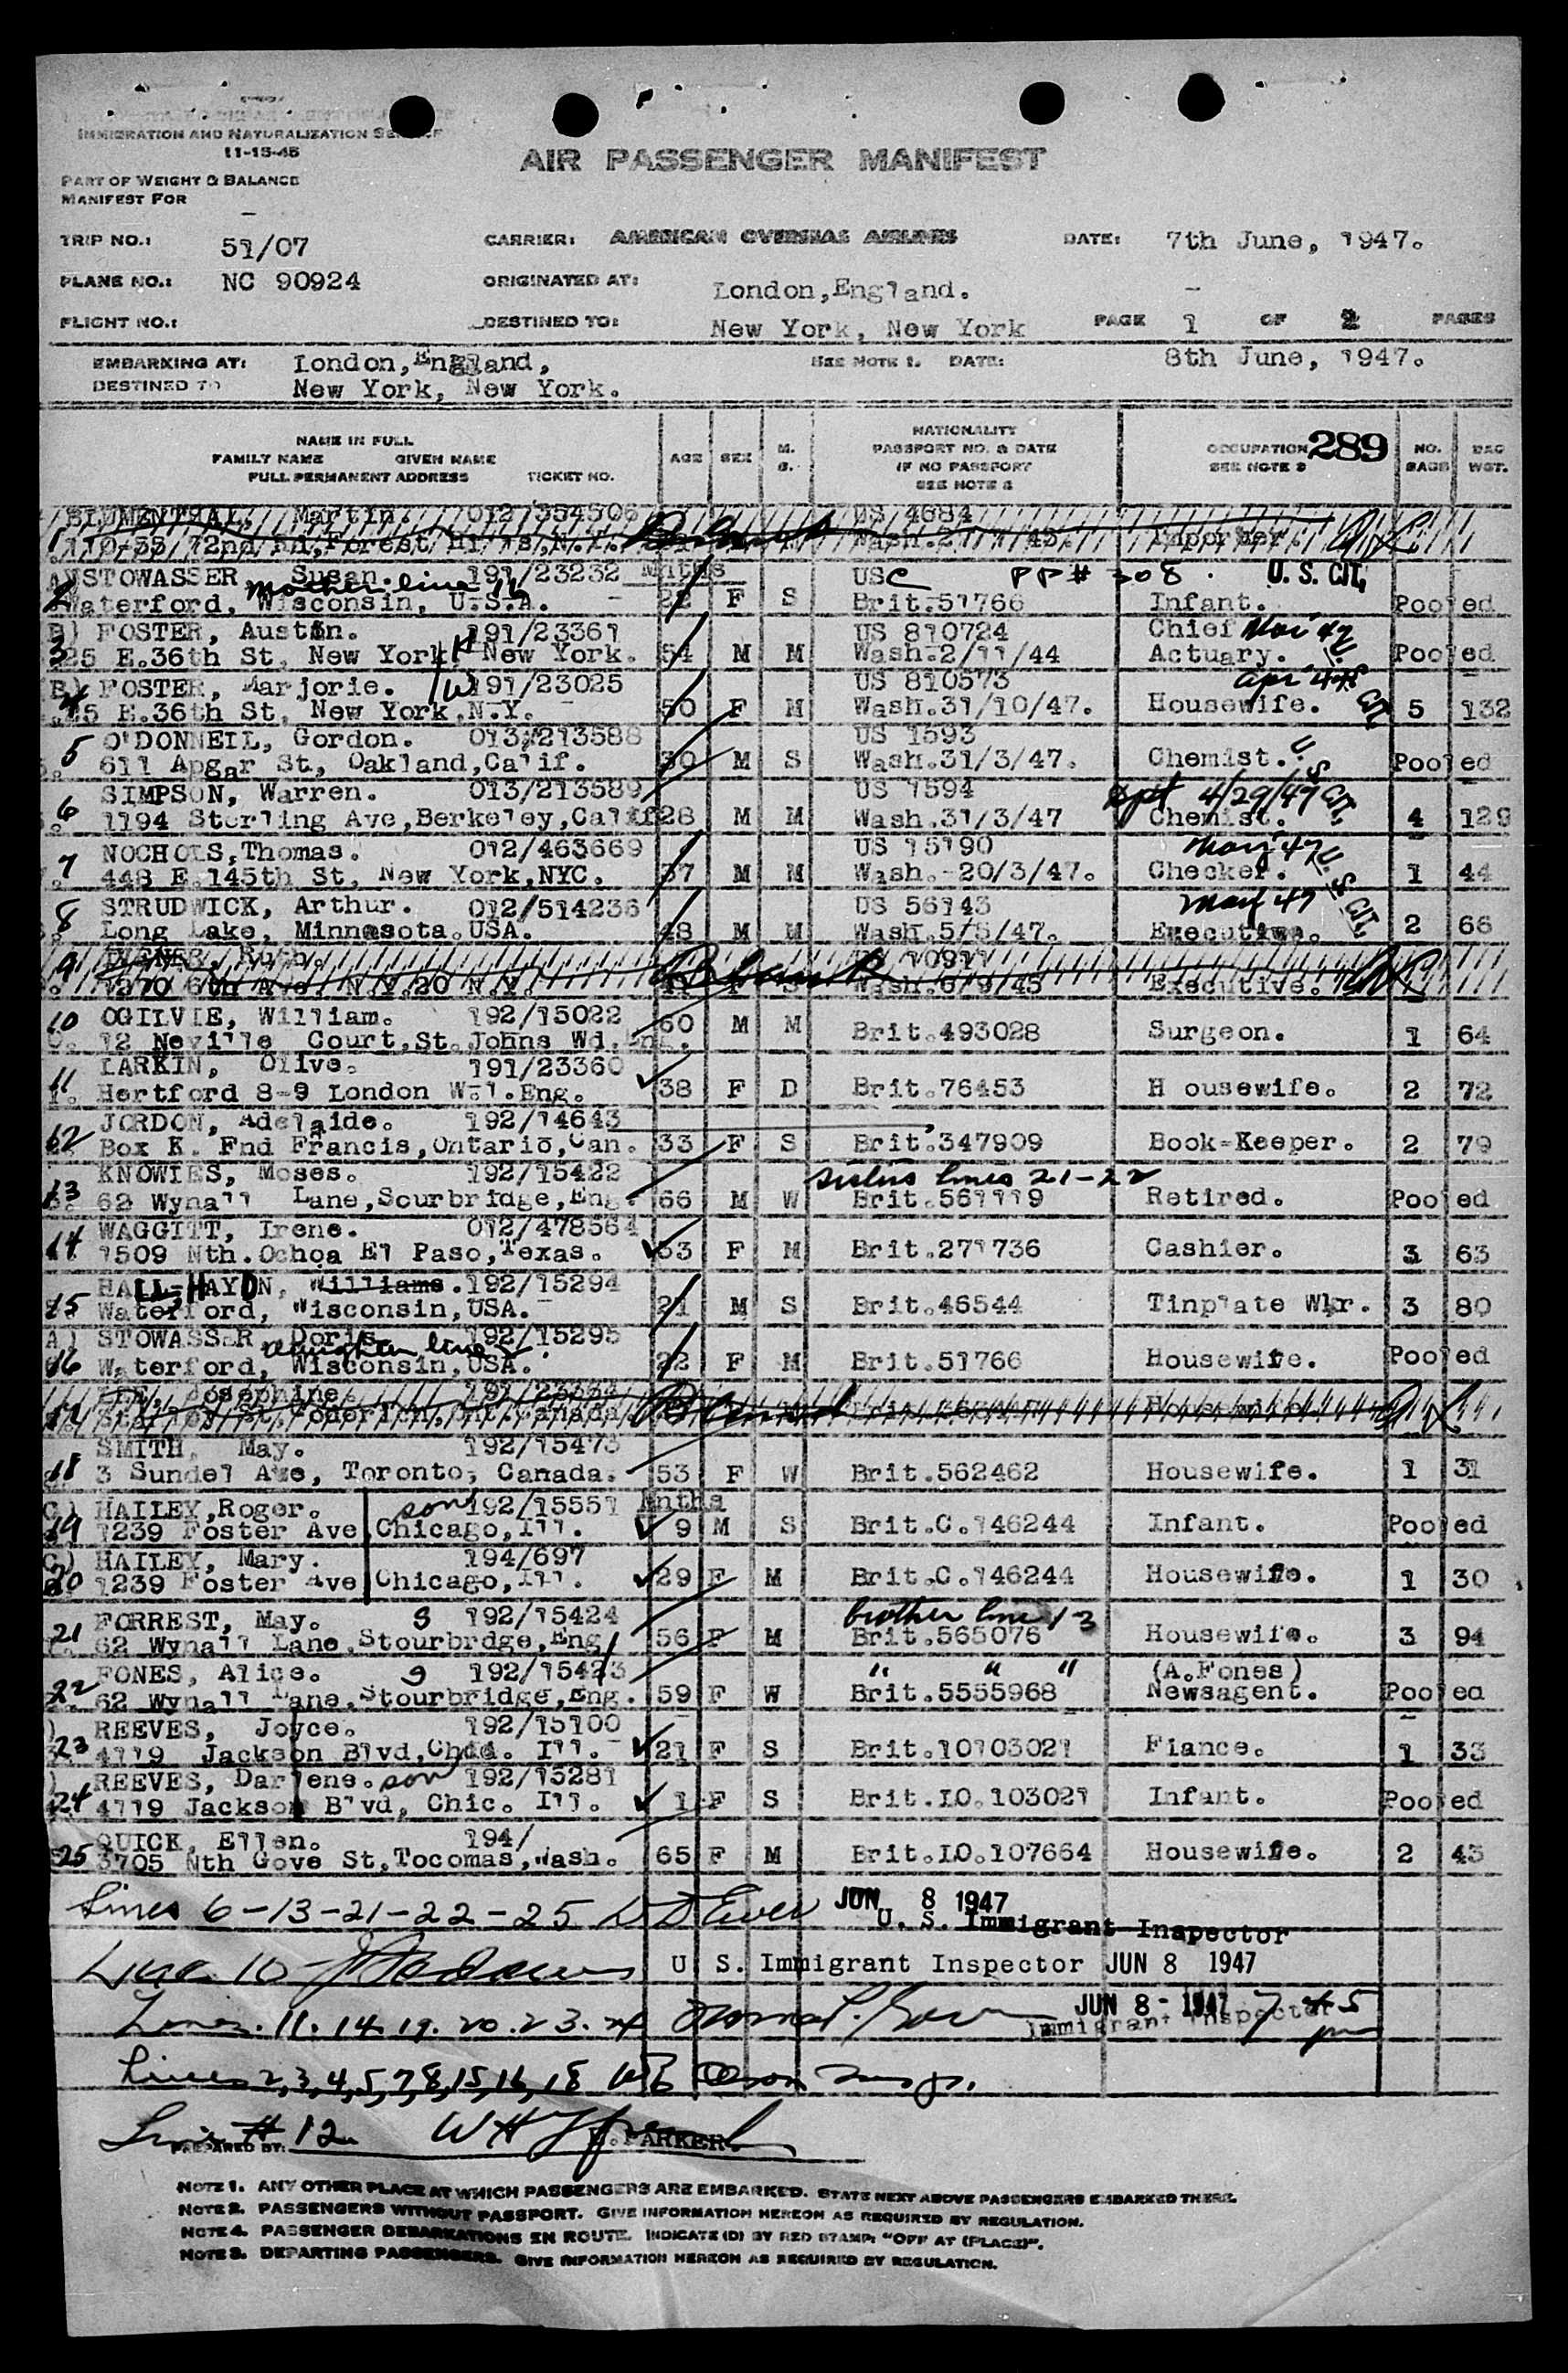 IMMIGRATION AND NATURALIZATION
11-15-45
PART OF WEIGHT & BALANCE
MANIFEST FOR
AIR PASSENGER MANIFEST
TRIP NO.: 51/07 CARRIER: AMERICAN OVERSEAS AIRLINES DATE: 7th June, 1947.
PLANE NO.: NC 90924 ORIGINATED AT: London,England.
FLIGHT NO.: DESTINED TO: New York, New York PAGE 1 OF 2 PAGES
EMBARKING AT: London,England, SEE NOTE 1. DATE: 8th June, 1947.
DESTINED TO New York, New York.
NAME IN FULL
FAMILY NAME GIVEN NAME
FULL PERMANENT ADDRESS TICKET NO.
AGE SEX M. S.
NATIONALITY
PASSPORT NO. & DATE
IF NO PASSPORT
SEE NOTE 2
OCCUPATION 289
SEE NOTE 3
NO. BAGS
BAG WGT.
BLUMENTHAL, Martin. 012/354506 US 4684
110-33/72nd Rd,Forest Hills,N.Y. Importer.
A) STOWASSER Susan. 191/23232 Mnths USC PP# 308. U. S. CIT.
2 mother line 16
Waterford, Wisconsin, U.S.A. 22 F S Brit.51766 Infant. Pooled
B) FOSTER, Austin. 191/23361 US 810724 Chief Mar 47
3 325 E.36th St, New York, New York. 54 M M Wash.2/11/44 Actuary. Pooled
B) FOSTER, Marjorie. W 191/23025 US 810573 Apr 47
4 E.36th St, New York,N.Y. 50 F M Wash.31/10/47. Housewife. 5 132
5 O'DONNEIL, Gordon. 013/213588 US 1593
611 Apgar St, Oakland,Calif. 30 M S Wash.31/3/47. Chemist. U. S. CIT. Pooled
6 SIMPSON, Warren. 013/213589 US 1594 4/29/47
1194 Sterling Ave,Berkeley,Calif 28 M M Wash.31/3/47 Chemist. 4 129
7 NOCHOLS,Thomas. 012/463669 US 15190 May 47
448 E.145th St, New York,NYC. 37 M M Wash.-20/3/47. Checker. U. S. CIT. 1 44
8 STRUDWICK, Arthur. 012/514236 US 56143 May 47
Long Lake, Minnesota.USA. 48 M M Wash.5/5/47. Executive. 2 66
9 Ruth. US 10911
1270 6th Ave. N.Y.20 N.Y. Wash.6/9/45 Executive.
10 OGILVIE, William. 192/15022
12 Neville Court,St.Johns Wd.Eng. 60 M M Brit.493028 Surgeon. 1 64
11 LARKIN, Olive. 191/23360
Hertford 8-9 London W.1.Eng. 38 F D Brit.76453 H ousewife. 2 72
12 JORDON, Adelaide. 192/14643
Box K. Fnd Francis,Ontario,Can. 33 F S Brit.347909 Book-Keeper. 2 79
13 KNOWIES, Moses. 192/15422 sisters lines 21-22
62 Wynall Lane,Scurbridge,Eng. 66 M W Brit.561119 Retired. Pooled
14 WAGGITT, Irene. 012/478564
1509 Nth.Ochoa El Paso,Texas. 53 F M Brit.271736 Cashier. 3 63
15 HALL-HAYDN, Williams. 192/15294
Waterford, Wisconsin,USA. 21 M S Brit.46544 Tinplate Wkr. 3 80
A) STOWASSER, Doris. 192/15295
16 daughter line 2
Waterford, Wisconsin,USA. 22 F M Brit.51766 Housewife. Pooled
Josephine. 191/23334
Goderich, Canada Housewife
18 SMITH, May. 192/15473
3 Sundel Ave, Toronto, Canada. 53 F W Brit.562462 Housewife. 1 31
C) HAILEY,Roger. son 192/15551 Mnths
19 1239 Foster Ave Chicago,Ill. 9 M S Brit.C.146244 Infant. Pooled
C) HAILEY, Mary. 194/697
20 1239 Foster Ave Chicago,Ill. 29 F M Brit.C.146244 Housewife. 1 30
21 FORREST, May. S 192/15424 brother line 13
62 Wynall Lane,Stourbrdge,Eng 56 F M Brit.565076 Housewife. 3 94
22 FONES, Alice. S 192/15423 " " " (A.Fones)
62 Wynall Lane,Stourbridge,Eng. 59 F W Brit.5555968 Newsagent. Pooled
) REEVES, Joyce. 192/15100
23 4119 Jackson Blvd,Chic. Ill. 21 F S Brit.10103021 Fiance. 1 33
) REEVES, Darlene. son 192/15281
24 4119 Jackson Blvd, Chic. Ill. 1 F S Brit.IO.103021 Infant. Pooled
25 QUICK, Ellen. 194/
3705 Nth Gove St,Tocomas,Wash. 65 F M Brit.IO.107664 Housewife. 2 43
Lines 6-13-21-22-25 JUN 8 1947
U. S. Immigrant Inspector
Line 10 U. S. Immigrant Inspector JUN 8 1947
Lines. 11. 14. 19. 20. 23. 24 JUN 8 - 1947 7 45 pm
Immigrant Inspector
Lines 2,3,4,5,7,8,15,16,18 Olson Insp.
Line # 12
PREPARED BY: PARKER.
NOTE 1. ANY OTHER PLACE AT WHICH PASSENGERS ARE EMBARKED. STATE NEXT ABOVE PASSENGERS EMBARKED THERE.
NOTE 2. PASSENGERS WITHOUT PASSPORT. GIVE INFORMATION HEREON AS REQUIRED BY REGULATION.
NOTE 4. PASSENGER DEBARKATIONS EN ROUTE. INDICATE (D) BY RED STAMP: "OFF AT (PLACE)".
NOTE 3. DEPARTING PASSENGERS. GIVE INFORMATION HEREON AS REQUIRED BY REGULATION.